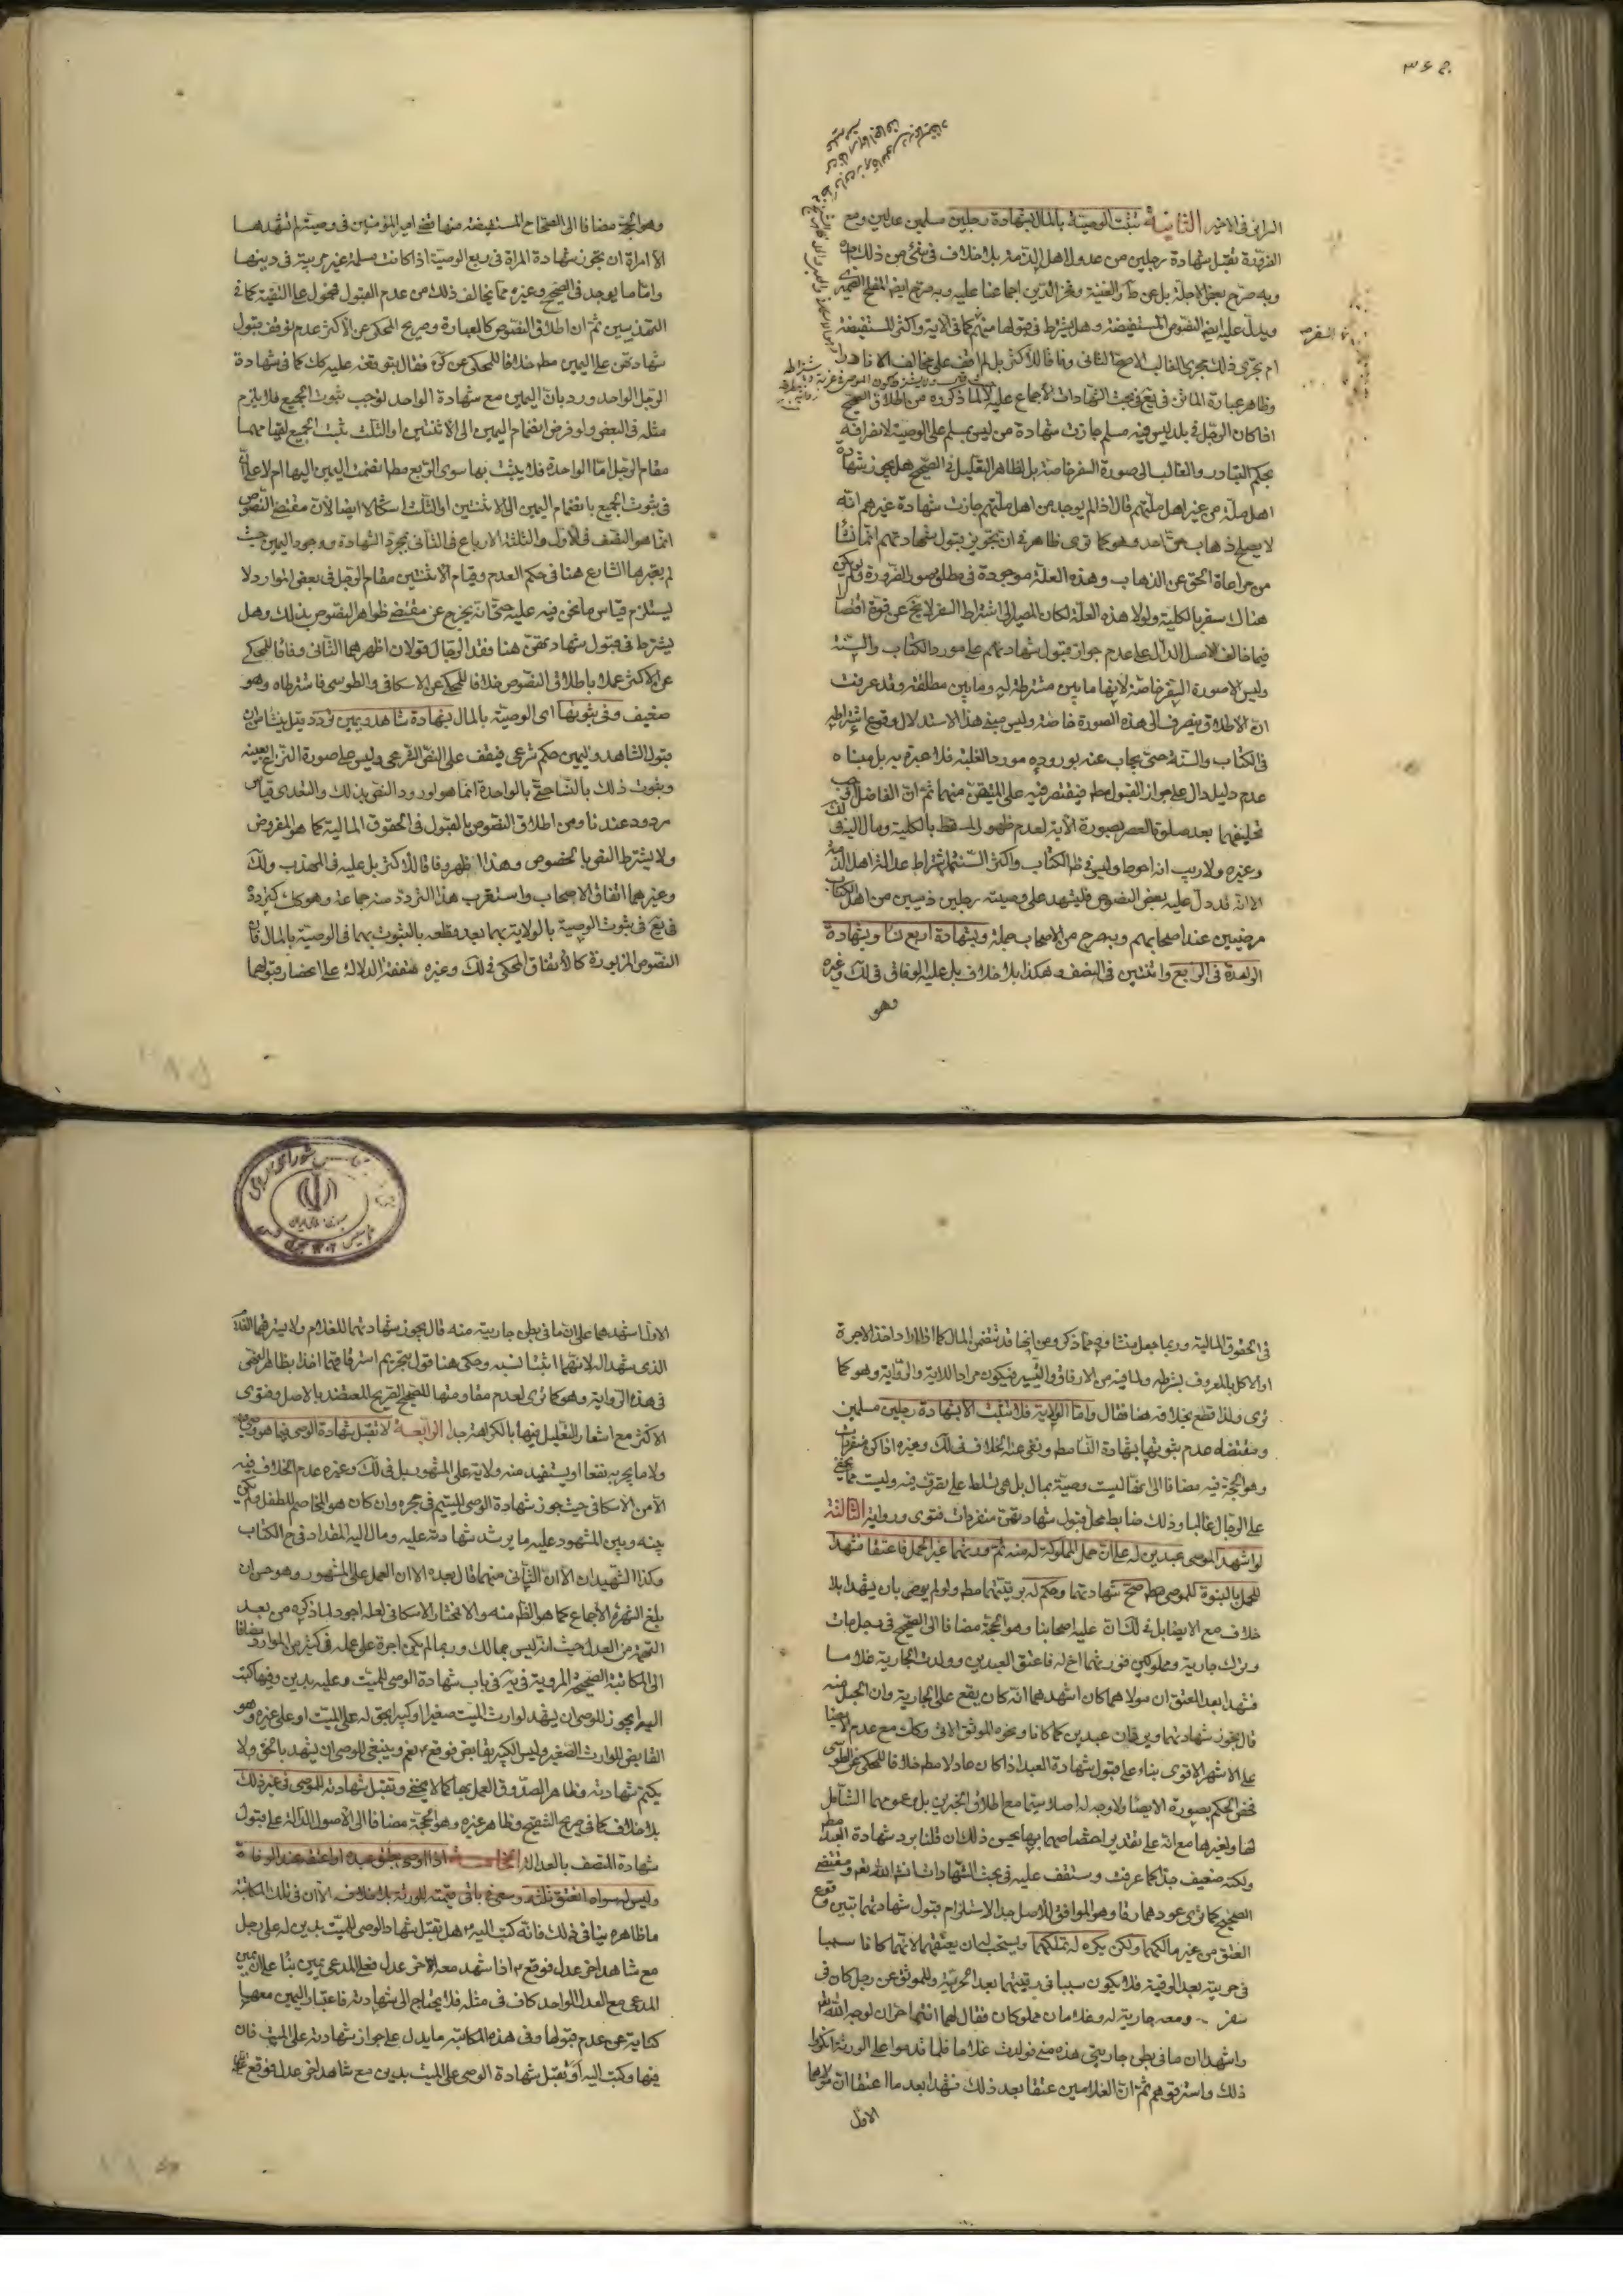 الثانية تثبت الوصية بالمال بشهادة رجلين مسلمين عدلين ومع
الضرورة تقبل شهادة رجلين من عدول اهل الذمة بلا خلاف فى شئ من ذلك
ويدل عليه ايضا النصوص المستفيضة وهل يشترط فى قبولها سفرهم كما فى الاية واكثر المستفيضة
ام يجرى ذلك مجرى الغالب الاصح الثانى وفاقا للاكثر بل لم اقف على مخالف الا نادرا
وظاهر عبارة الماتن فى يع فى بحث الشهادات الاجماع عليه لا لما ذكروه من اطلاق الصحيح
اذا كان الرجل فى بلد ليس فيه مسلم جازت شهادة من ليس بمسلم على الوصية لانصرافه
بحكم التبادر والغالب الى صورة السفر خاصة بل لظاهر التعليل فى الصحيح هل يجوز شهادة
اهل ملة من غير اهل ملتهم قال اذا لم يوجد من اهل ملتهم جازت شهادة غيرهم انه
لا يصلح ذهاب حق احد وهو كما ترى ظاهر فى ان تجويز قبول شهادتهم انما نشأ
من مراعاة الحق عن الذهاب وهذه العلة موجودة فى مطلق صور الضرورة ولو لم يكن
هناك سفر بالكلية ولولا هذه العلة لكان المصير الى اشتراط السفر لا يخ عن قوة اقتصارا
فيما خالف الاصل الدال على عدم جواز قبول شهادتهم على مورد الكتاب والسنة
وليس الا صورة السفر خاصة لانها ما بين مشترطة له وما بين مطلقة وقد عرفت
ان الاطلاق ينصرف الى هذه الصورة خاصة وليس مبنى هذا الاستدلال وقوع اشتراطه
فى الكتاب والسنة حتى يجاب عنه بوروده مورد الغلبة فلا عبرة به بل مبناه
عدم دليل دال على جواز القبول مطم فيقتصر فيه على المتيقن منهما ثم ان الفاضل اوجب
تحليفهما بعد صلوة العصر بصورة الاية لعدم ظهور المسقط بالكلية ومال اليه فى لك
وغيره ولا ريب انه احوط وليس فى ظ الكتاب واكثر السنة اشتراط عدالة اهل الذمة
الا انه قد دل عليه بعض النصوص فليشهد على وصيته رجلين ذميين من اهل الكتاب
مرضيين عند اصحابهم وبه صرح من الاصحاب جملة وبشهادة اربع نساء وبشهادة
الواحدة فى الربع واثنتين فى النصف وهكذا بلا خلاف بل عليه الوفاق فى لك وغيره
وهو
وهو الحجة مضافا الى الصحاح المستفيضة منها قضى امير المؤمنين فى وصية لم تشهدها
الا امراة ان تجوز شهادة المراة فى ربع الوصية اذا كانت مسلمة غير مريبة فى دينها
واما ما يوجد فى الصحيح وغيره مما يخالف ذلك من عدم القبول فمحمول على التقية كما فى
التهذيبين ثم ان اطلاق النصوص كالعبارة وصريح المحكى عن الاكثر عدم توقف قبول
شهادتهن على اليمين مطم خلافا للمحكى عن كره فقال بتوقفه عليه كك كما فى شهادة
الرجل الواحد ورد بان اليمين مع شهادة الواحد توجب ثبوت الجميع فلا يلزم
مثله فى البعض ولو فرض انضمام اليمين الى الاثنتين او الثلث ثبت الجميع لقيامهما
مقام الرجل اما الواحدة فلا يثبت بها سوى الربع مطا انضمت اليمين اليها ام لا على ان
فى ثبوت الجميع بانضمام اليمين الى الاثنتين او الثلث اشكالا ايضا لان مقتضى النصوص
انما هو النصف فى الاول والثلثة الارباع فى الثانى بمجرد الشهادة ووجود اليمين حيث
لم يعتبرها الشارع هنا فى حكم العدم وقيام الاثنتين مقام الرجل فى بعض الموارد لا
يستلزم قياس ما نحن فيه عليه حتى انه يخرج عن مقتضى ظواهر النصوص بذلك وهل
يشترط فى قبول شهادتهن هنا فقد الرجال قولان اظهرهما الثانى وفاقا للمحكى
عن الاكثر عملا باطلاق النصوص خلافا للمحكى عن الاسكافى والطوسى فاشترطاه وهو
ضعيف وفى ثبوتها اى الوصية بالمال بشهادة شاهد ويمين تردد
قبول الشاهد واليمين حكم شرعى فيقف على النص الشرعى وليس على صورة النزاع بعينه
وثبوت ذلك بالنساء حتى بالواحدة انما هو لورود النص بذلك والتعدى قياس
مردود عندنا ومن اطلاق النصوص بالقبول فى الحقوق المالية كما هو المفروض
ولا يشترط النص بالخصوص وهذا اظهر وفاقا للاكثر بل عليه فى المهذب ولك
وغيرهما اتفاق الاصحاب واستغرب هذا التردد منه جماعة وهو كك كتردده
فى يع فى ثبوت الوصية بالولاية بهما بعد قطعه بالثبوت بهما فى الوصية بالمال فان
النصوص المزبورة كالاتفاق المحكى فى لك وغيره متفقة الدلالة على اختصار قبولهما
فى الحقوق المالية وربما يجعل منشأوه مما ذكر ومن انها قد تتضمن المال كما اذا اراد اخذ الاجرة
او الاكل بالمعروف بشرطه ولما فيه من الارفاق والتيسير فيكون مرادا للاية والرواية وهو كما
ترى ولذا قطع بخلافه هنا فقال واما الولاية فلا تثبت الا بشهادة رجلين مسلمين
ومقتضاه عدم ثبوتها بشهادة النساء مطم ونفى عنه الخلاف فى لك وغيره اذا كن منفردات
وهو الحجة فيه مضافا الى انها ليست وصية بمال بل هى تسلط على تصرف فيه وليست مما يخفى
على الرجال غالبا وذلك ضابط محل قبول شهادتهن منفردات فتوى ورواية الثالثة
لو اشهد الموصى عبدين له على ان حمل المملوكة له منه ثم ورثهما غير الحمل فاعتقا فشهدا
للحمل بالبنوة للموصى مطم صح شهادتهما وحكم له برقيتهما مطم ولو لم يوصى بان يشهدا بلا
خلاف مع الايصا بل فى لك ان عليه اصحابنا وهو الحجة مضافا الى الصحيح فى رجل مات
وترك جارية ومملوكين فورثهما اخ له فاعتق العبدين وولدت الجارية غلاما
فشهدا بعد العتق ان مولاهما كان اشهدهما انه كان يقع على الجارية وان الحبل منه
قال تجوز شهادتهما ويردان عبدين كما كانا ونحوه الموثق الاتى وكك مع عدم الايصا
على الاشهر الاقوى بناء على قبول شهادة العبد اذا كان عادلا مطم خلافا للمحكى عن الطوسى
فخص الحكم بصورة الايصا ولا وجه له اصلا سيما مع اطلاق الخبرين بل وعمومهما الشامل
لها ولغيرها مع انه على تقدير اختصاصهما بها يحسن ذلك ان قلنا برد شهادة العبد مطم
ولكنه ضعيف جدا كما عرفت وستقف عليه فى بحث الشهادات انشاء الله تعم ومقتضى
الصحيح كما ترى عودهما رقا وهو الموافق للاصل جدا لاستلزام قبول شهادتهما تبين وقوع
العتق من غير مالكهما ولكن يكره له تملكهما ويستحب له ان يعتقهما لانهما كانا سببا
فى حريته بعد الرقية فلا يكون سببا فى رقيتهما بعد الحرية وللموثق عن رجل كان فى
سفر ومعه جارية له وغلامان مملوكان فقال لهما انتما احران لوجه الله تعم
واشهدا ان ما فى بطن جاريتى هذه منى فولدت غلاما فلما قدموا على الورثة انكروا
ذلك واسترقوهم ثم ان الغلامين عتقا بعد ذلك فشهدا بعد ما اعتقا ان مولاهما
الاول
الاول اشهدهما على ان ما فى بطن جاريته منه قال يجوز شهادتهما للغلام ولا يسترقهما الغلام
الذى شهدا له لانهما اثبتا نسبه وحكى هنا قول بتحريم استرقاقهما اخذا بظاهر النهى
فى هذه الرواية وهو كما ترى لعدم مقاومتها للصحيح الصريح المعتضد بالاصل وفتوى
الاكثر مع اشعار التعليل فيها بالكراهة جدا الرابعة لا تقبل شهادة الوصى فيما هو وصى فيه
ولا ما يجر به نفعا او يستفيد منه ولاية على المشهور بل فى لك وغيره عدم الخلاف فيه
الا من الاسكافى حيث جوز شهادة الوصى لليتيم فى حجره وان كان هو المخاصم للطفل ولم يكن
بينه وبين المشهود عليه ما يرد شهادته عليه ومال اليه المقداد فى ح الكتاب
وكذا الشهيدان الا ان الثانى منهما قال بعده الا ان العمل على المشهور وهو حسن ان
بلغ الشهرة الاجماع كما هو الظم منه والا فمختار الاسكافى لعله اجود لما ذكره من بعد
التهمة من العدل حيث انه ليس بمالك وربما لم يكن اجرة على عمله فى كثير من الموارد مضافا
الى المكاتبة الصحيحة المروية فى يه فى باب شهادة الوصى للميت وعليه بدين وفيها كتب
اليه ايجوز للوصى ان يشهد لوارث الميت صغيرا او كبيرا بحق له على الميت او على غيره وهو
القابض للوارث الصغير وليس الكبير بقابض فوقع نعم وينبغى للوصى ان يشهد بالحق ولا
يكتم شهادته وظاهر الصدوق العمل بها كما لا يخفى وتقبل شهادته للموصى فى غير ذلك
بلا خلاف كما فى صريح التنقيح وظاهر غيره وهو الحجة مضافا الى الاصول الدالة على قبول
شهادة المتصف بالعدالة الخامسة اذا اوصى بعتق عبده او اعتقه عند الوفاة
وليس له سواه انعتق ثلثه وسعى فى باقى قيمته للورثة بلا خلاف الا ان فى تلك المكاتبة
ما ظاهره ينافى ذلك فانه كتب اليه هل تقبل شهادة الوصى للميت بدين له على رجل
مع شاهد اخر عدل فوقع اذا شهد معه اخر عدل فعلى المدعى يمين بناء على ان يمين
المدعى مع العدل الواحد كاف فى مثله فلا يحتاج الى شهادته فاعتبار اليمين معها
كناية عن عدم قبولها وفى هذه المكاتبة ما يدل على جواز شهادته على الميت فان
فيها وكتب اليه او تقبل شهادة الوصى على الميت بدين مع شاهد اخر عدل فوقع نعم